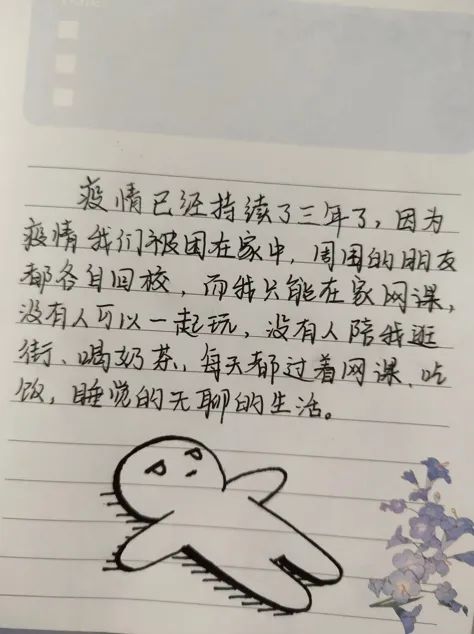 疫情已经持续了三年了，因为
疫情我们被困在家中，周围的朋友
都各自回校，而我只能在家网课，
没有人可以一起玩，没有人陪我逛
街、喝奶茶，每天都过着网课、吃
饭，睡觉的无聊的生活。